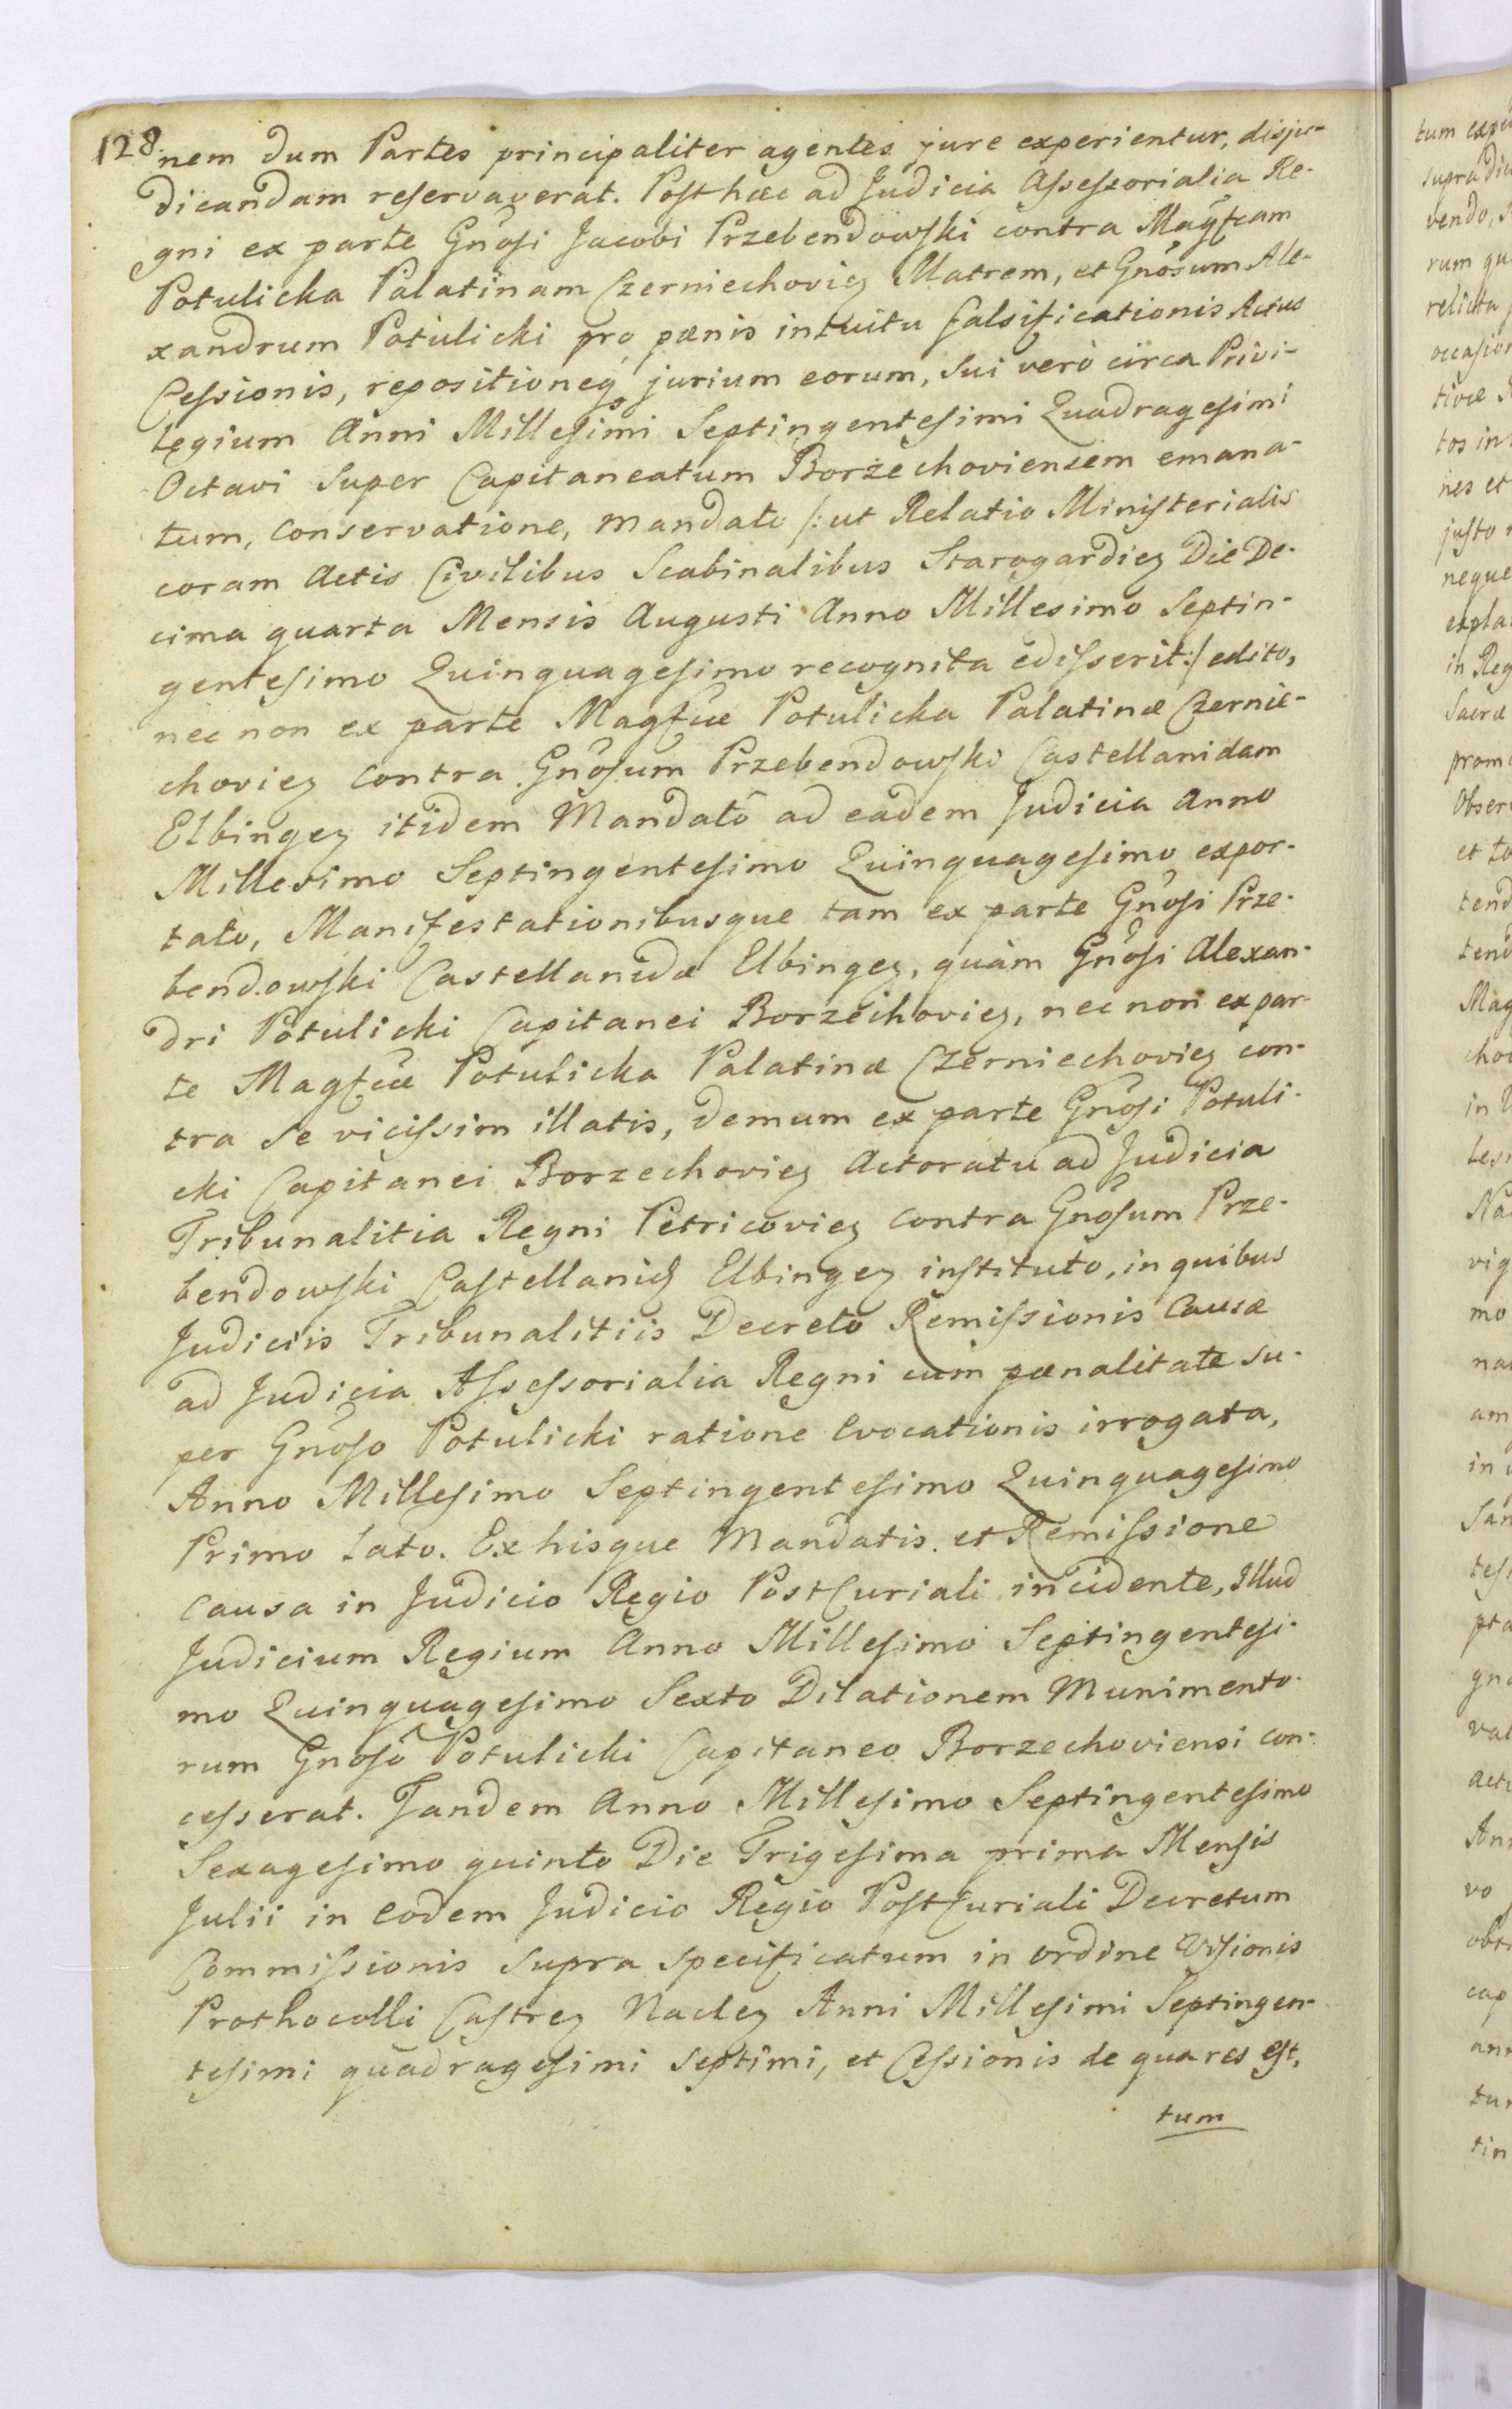 128. nem dum Partes principaliter agentes jure experientur, disju-
dicandam reservaverat. Posthæc ad Judicia Assessorialia Re-
gni ex parte Gnõsi Jacobi Przebendowski contra Magfcam
Potulicka Palatinam Czerniechovieȝ Matrem, et Gnõsum Ale-
xandrum Potulicki pro pœnis intuitu falsificationis Actus
Cessionis, repositioneqȝ jurium eorum, sui verò circa Privi-
legium Anni Millesimi Septingentesimi Quadragesimi
Octavi super Capitaneatum Borzechoviensem emana-
tum, conservatione, mandato /: ut Relatio Ministerialis
coram Actis Civilibus Scabinalibus Starogardieȝ Die De-
cima quarta Mensis Augusti Anno Millesimo Septin-
gentesimo Quinquagesimo recognita edisserit :/ edito,
nec non ex parte Magfcæ Potulicka Palatinæ Czernie-
chovieȝ contra Gnõsum Przebendowski Castellanidam
Elbingeȝ itidem Mandatõ ad eadem Judicia Anno
Millesimo Septingentesimo Quinquagesimo expor-
tato, Manifestationibusque tam ex parte Gnõsi Prze-
bendowski Castellanidæ Elbingeȝ, quàm Gnõsi Alexan-
dri Potulicki Capitanei Borzechovieȝ, nec non ex par-
te Magfcæ Potulicka Palatinæ Czerniechovieȝ con-
tra se vicissim illatis, demum ex parte Gnõsi Potuli-
cki Capitanei Borzechovieȝ Actoratu ad Judicia
Tribunalitia Regni Petricovieȝ contra Gnõsum Prze-
bendowski Castellanid Elbingeȝ instituto, in quibus
Judiciis Tribunalitiis Decreto Remissionis Causæ
ad Judicia Assessorialia Regni cum pœnalitate su-
per Gnõso Potulicki ratione Evocationis irrogata,
Anno Millesimo Septingentesimo Quinquagesimo
Primo Lato. Ex hisque Mandatis et Remissione
causa in Judicio Regio PostCuriali incidente, Illud
Judicium Regium Anno Millesimo Septingentesi-
mo Quinquagesimo Sexto Dilationem Munimento-
rum Gnosõ Potulicki Capitaneo Borzechoviensi con-
cesserat. Tandem Anno Millesimo Septingentesimo
Sexagesimo quinto Die Trigesima prima Mensis
Julii in eodem Judicio Regio PostCuriali Decretum
Commissionis supra specificatum in ordine Visionis
Prothocolli Castreȝ Nacleȝ Anni Millesimi Septingen-
tesimi quadragesimi septimi, et Cessionis de qua res est,
tum